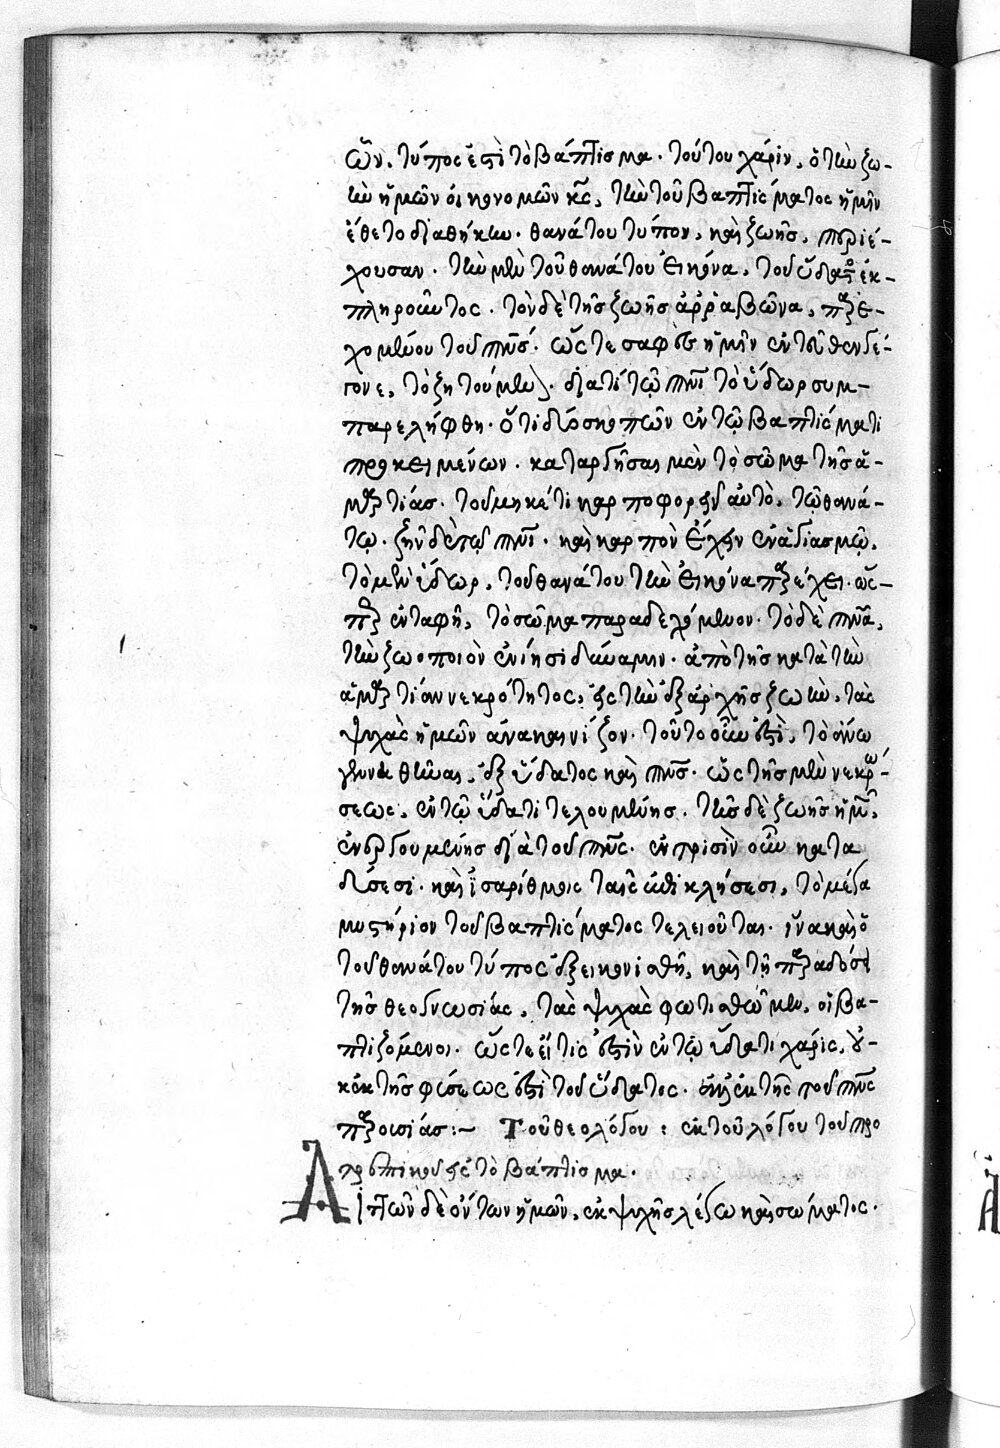 ὧν. τύπος ἐστὶ τὸ βάπτισμα. τούτου χάριν, ὁ τὴν ζω-
ὴν ἡμῶν οἰκονομῶν κς, τὴν τοῦ βαπτίσματος ἡμῖν
ἔθετο διαθήκην. θανάτου τύπον, καὶ ζωῆς, περιέ-
χουσαν. τὴν μὲν τοῦ θανάτου εἰκόνα, τοῦ ὕδατος ἐκ-
πληροῦντος. τὸν δὲ τῆς ζωῆς ἀρραβῶνα, παρε-
χομένου τοῦ πνς. ὥστε σαφὲς ἡμῖν ἐντεῦθεν γέ-
γονε, τὸ ζητούμενον. διατί τῷ πνι τὸ ὕδωρ συμ-
παρελήφθη. ὅτι δύο σκοπῶν ἐν τῷ βαπτίσματι
προκειμένων. καταργῆσαι μὲν τὸ σῶμα τῆς ἁ-
μαρτίας. τοῦ μηκέτι καρποφορεῖν αὐτὸ, τῷ θανά-
τῳ. ζῆν δὲ τῷ πνι. καὶ καρπὸν ἔχειν ἐν ἁγιασμῷ.
τὸ μὲν ὕδωρ, τοῦ θανάτου τὴν εἰκόνα παρέχει. ὥσ-
περ ἐν ταφῇ, τὸ σῶμα παραδεχόμενον. τὸ δὲ πνα,
τὴν ζωοποιὸν ἐνίησι δύναμιν. ἀπὸ τῆς κατὰ τὴν
ἁμαρτίαν νεκρότητος, εἰς τὴν ἐξ ἀρχῆς ζωὴν, τὰς
ψυχὰς ἡμῶν ἀνακαινίζον. τοῦτο οὖν ἐστὶ, τὸ ἄνω
γεννηθῆναι, ἐξ ὕδατος καὶ πνς. ὡς τῆς μὲν νεκρώ-
σεως, ἐν τῷ ὕδατι τελουμένης. τῆς δὲ ζωῆς ἡμῶν,
ἐνεργουμένης διὰ τοῦ πνς. ἐν τρισὶν οὖν κατα
δύσεσι. καὶ ἰσαρίθμοις ταῖς ἐπικλήσεσι, τὸ μέγα
μυστήριον τοῦ βαπτίσματος τελειοῦται. ἵνα καὶ ὁ
τοῦ θανάτου τύπος ἐξεικονισθῇ, καὶ τῇ παραδόσει
τῆς θεογνωσίας, τὰς ψυχὰς φωτισθῶμεν, οἱ βα-
πτιζόμενοι. ὥστε εἴ τις ἐστὶν ἐν τῷ ὕδατι χάρις, οὐ-
κ ἐκ τῆς φύσεως ἐστὶ τοῦ ὕδατος. ἀλλ' ἐκ τῆς τοῦ πνς
παρουσίας :~ Τοῦ θεολόγου : ἐκ τοῦ λόγου τοῦ προ
τρεπτικοῦ εἰς τὸ βάπτισμα.
Διττῶν δὲ ὄντων ἡμῶν, ἐκ ψυχῆς λέγω καὶ σώματος.